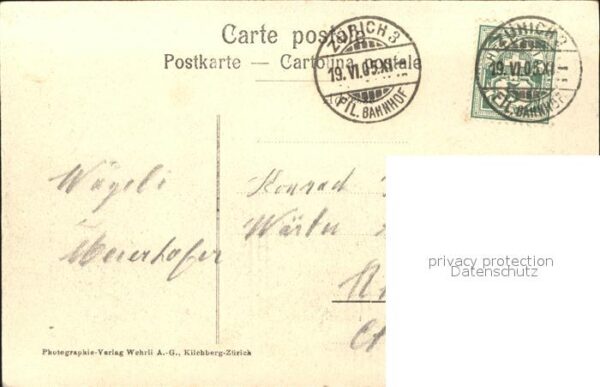 Carte postale
Postkarte — Cartolina postale
ZÜRICH 3
19.VI.05.XI
FIL. BAHNHOF
ZÜRICH 3
19.VI.05.XI
FIL. BAHNHOF
Wägeli
Meierhofer
Konrad
privacy protection
Datenschutz
Photographie-Verlag Wehrli A.-G., Kilchberg-Zürich